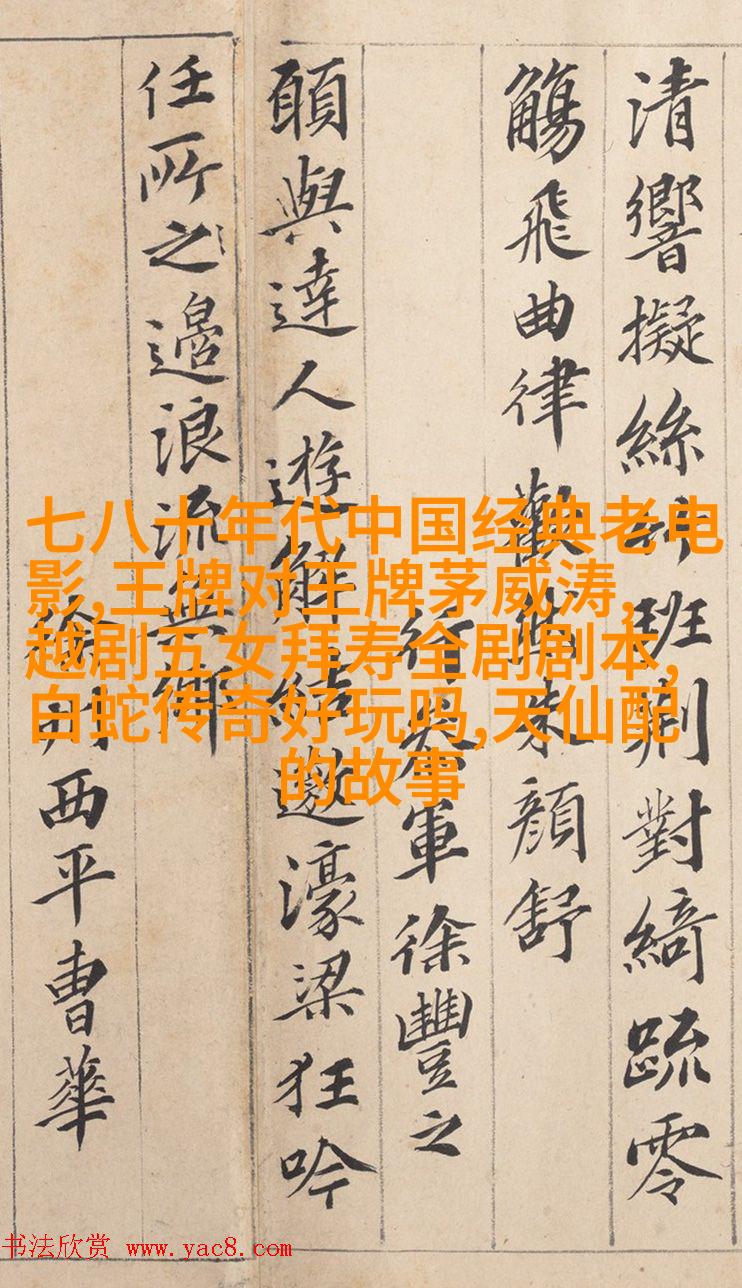 清響擬絲竹班荊對綺疏零
觴飛曲律歡然朱顏舒
行參軍徐豐之
願與達人遊解結遨濠梁狂吟
任所之邉浪流無鄉
徐州西平曹華
七八十年代中国经典老电
影,王牌对王牌茅威涛,
越剧五女拜寿全剧剧本,
白蛇传奇好玩吗,天仙配
的故事
书法欣赏 www.yac8.com